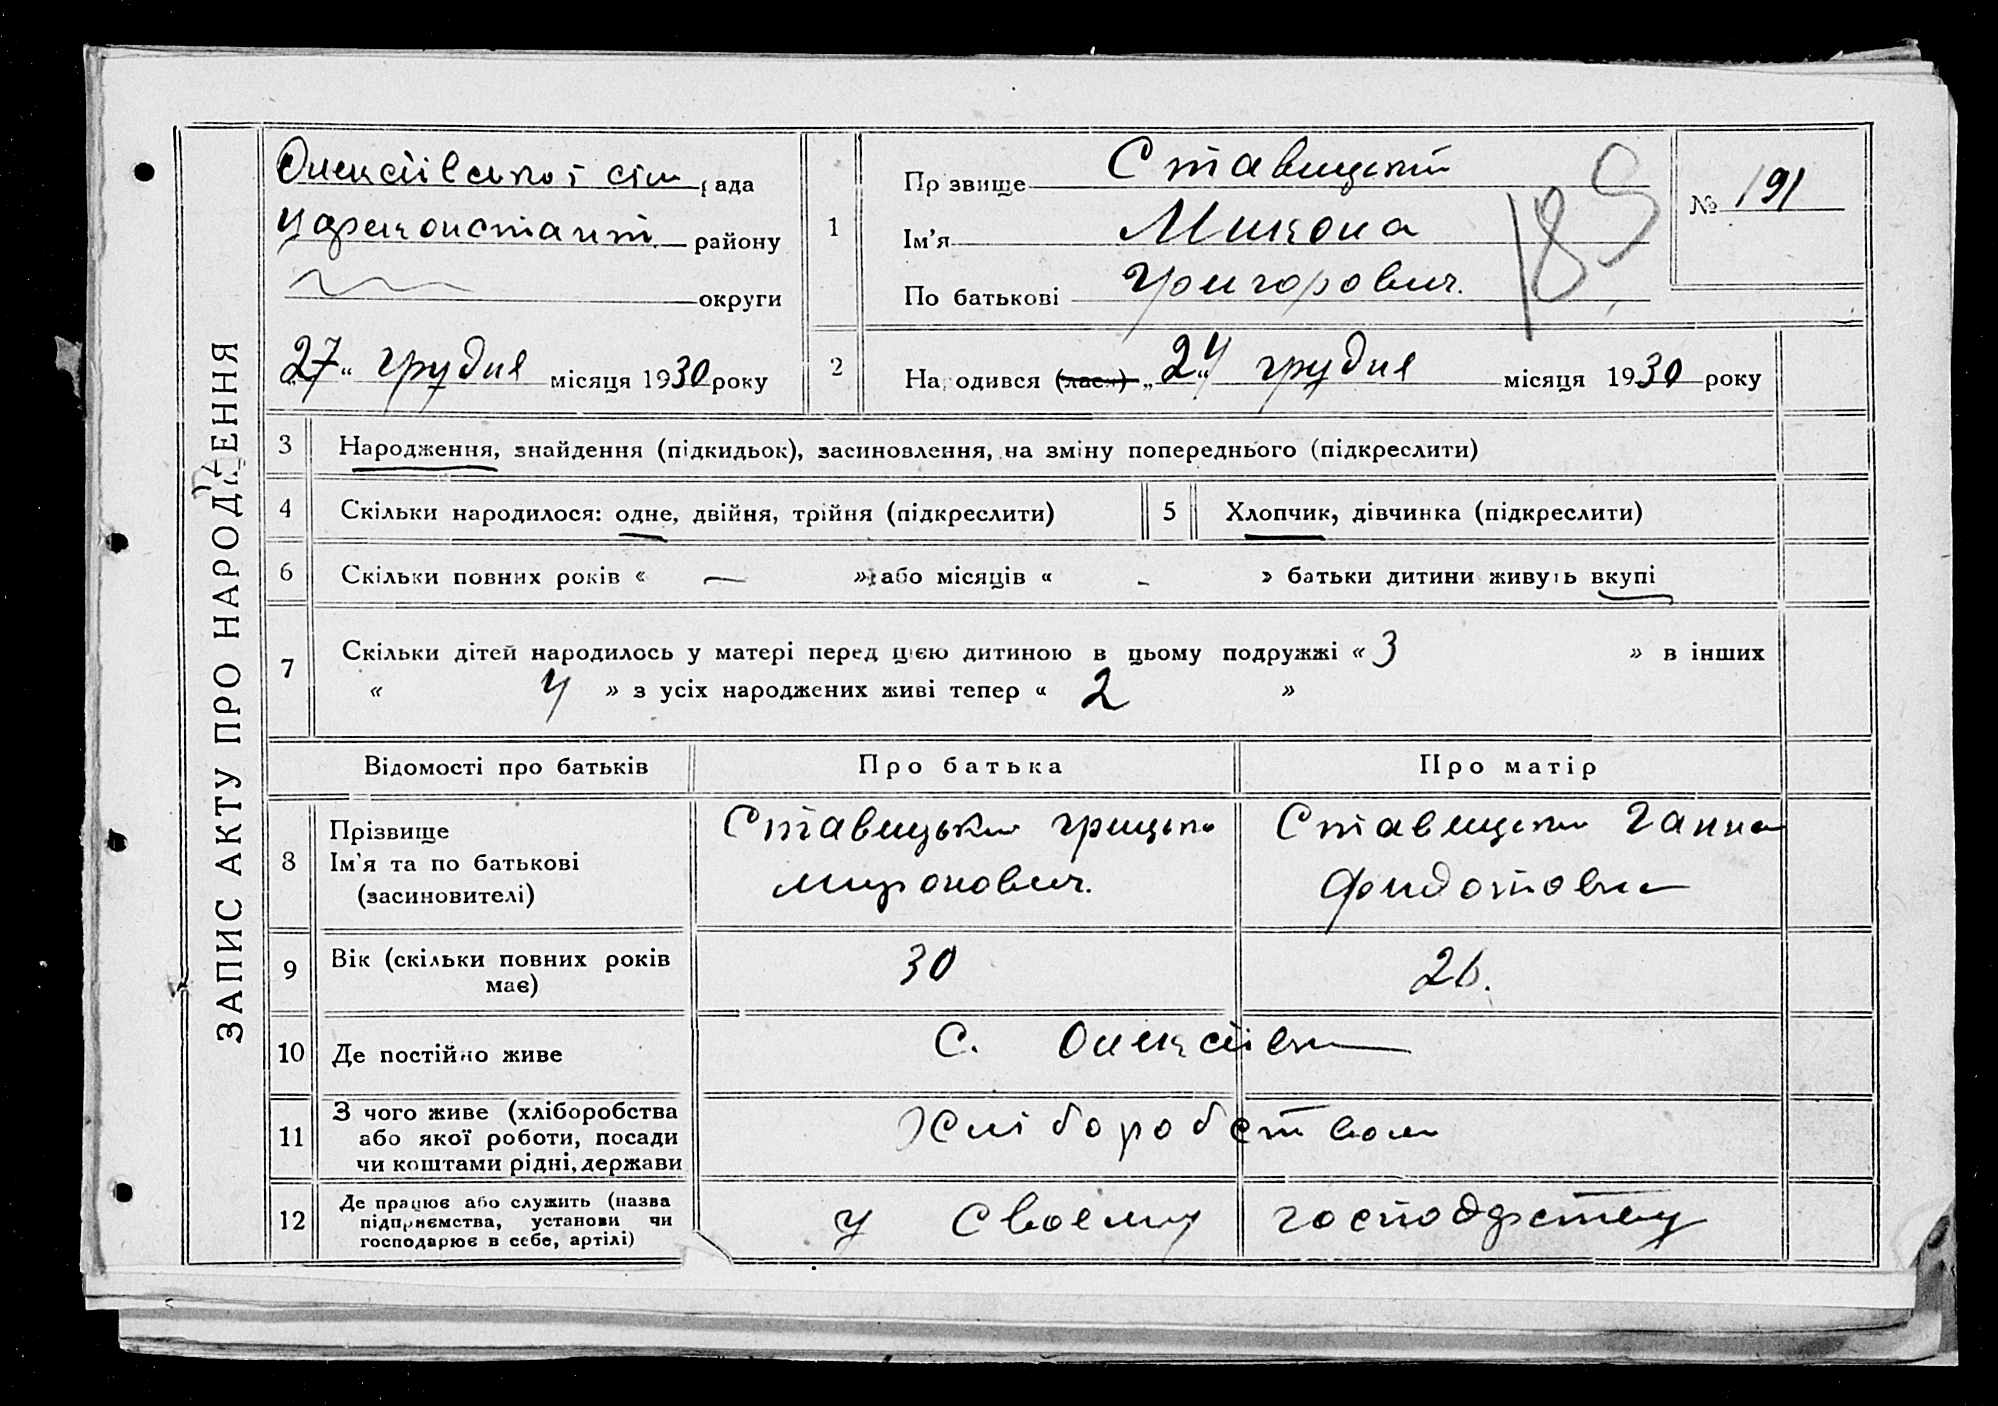 ЗАПИС АКТУ ПРО НАРОДЖЕННЯ
Олексіївської сіл рада
Царичонський району
округи
„27“ грудня місяця 1930 року
1
Прізвище Ставицький
Ім'я Микола
По батькові Григорович.
185
№ 191
2
Народився (лася) „24“ грудня місяця 1930 року
3 Народження, знайдення (підкидьок), засиновлення, на зміну попереднього (підкреслити)
4 Скільки народилося: одне, двійня, трійня (підкреслити)
5 Хлопчик, дівчинка (підкреслити)
6 Скільки повних років « — » або місяців « - » батьки дитини живуть вкупі
7 Скільки дітей народилось у матері перед цією дитиною в цьому подружжі « 3 » в інших
« 4 » з усіх народжених живі тепер « 2 »
Відомості про батьків Про батька Про матір
8
Прізвище
Ім'я та по батькові
(засиновителі)
Ставицький Грицько
Миронович.
Ставицька Ганна
Фидотовна
9 Вік (скільки повних років
має)
30 26.
10 Де постійно живе с. Олексіївка
11 З чого живе (хліборобства
або якої роботи, посади
чи коштами рідні, держави
Хліборобством
12 Де працює або служить (назва
підприємства, установи чи
господарює в себе, артілі)
у своєму господарству